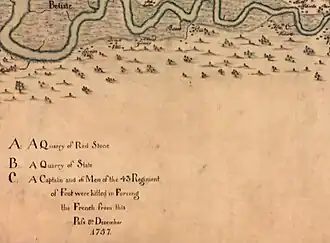 A. A Quarry of Red Stone
B. A Quarry of Slate
C. A Captain and 16 Men of the 43 Regiment
of Foot were killed in Forcing
the French from this
Pass 8t. December
1757.